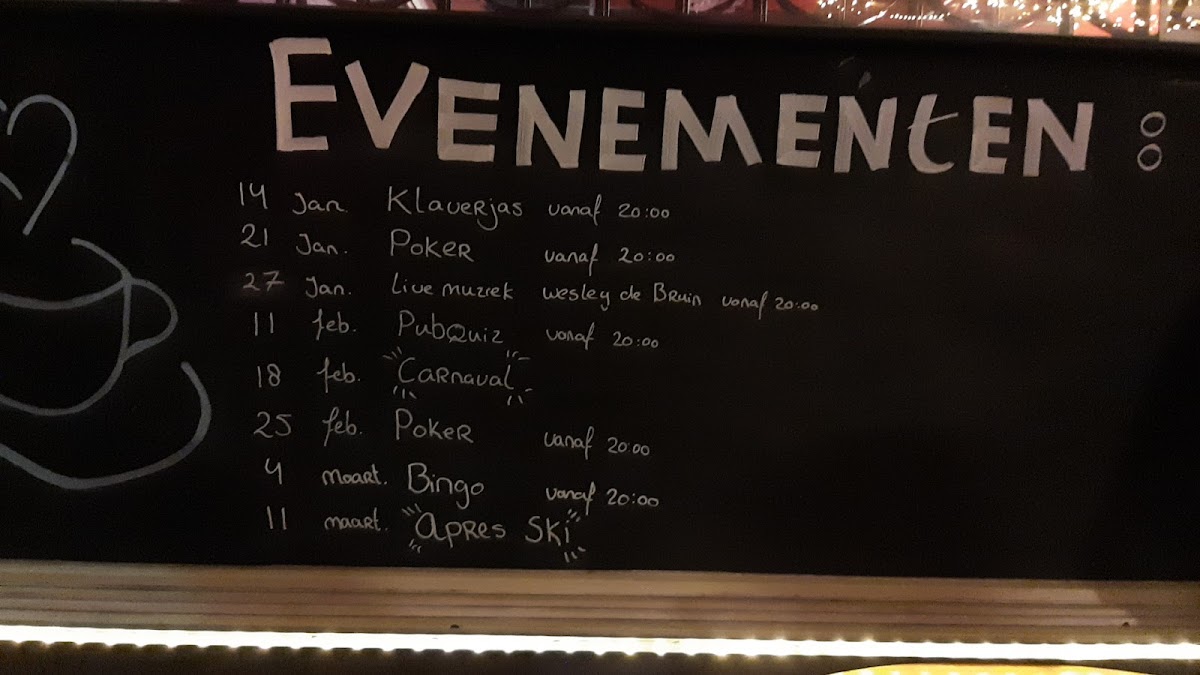 EVENEMENtEN :
14 Jan. Klaverjas vanaf 20:00
21 Jan. Poker vanaf 20:00
27 Jan. Live muziek Wesley de Bruin vanaf 20:00
11 feb. PubQuiz vanaf 20:00
18 feb. Carnaval
25 feb. Poker vanaf 20:00
4 maart. Bingo vanaf 20:00
11 maart. Apres Ski